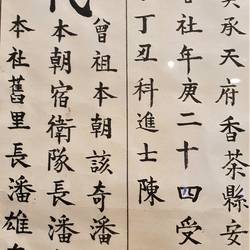 承天府香茶縣安
社年庚二十四受
丁丑科進士陳
曾祖本朝該奇潘
本朝宿衛隊長潘
本社舊里長潘雄